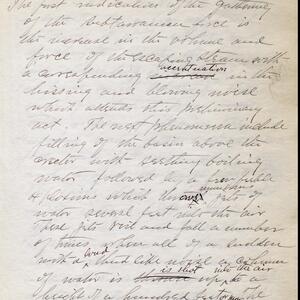 The first indication of the gathering
of the subterranean fire is
the increase in the volume and
force of the escaping steam with
a corresponding accentuation in the
hissing and blowing noise
which attends this preliminary
act. The next phenomena include
filling of the basin above the
crater with seething boiling
water followed by a few
explosions which throw jets of
water several feet into the air
These jets rise and fall a number
of times, when all of a sudden
with a loud noise a column
of water is shot into the air up to a
height of a hundred feet or more